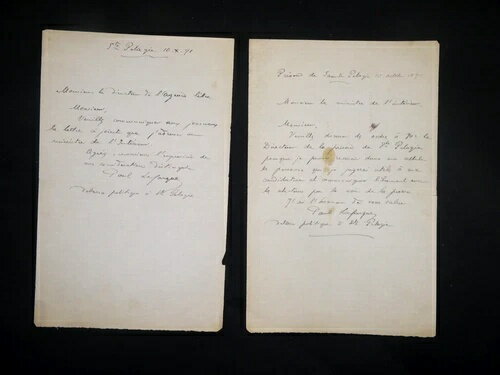 Ste Pelagie 10-X-91
Monsieur le directeur de l'Agence Libre
Monsieur,
Veuillez communiquer aux journaux
la lettre ci jointe que j'adresse au
ministre de l'Intérieur.
Agréez, monsieur, l'expression de
ma considération distinguée
Paul Lafargue
detenu politique à Ste Pelagie
Prison de Sainte Pelagie 10 octobre 1891
Monsieur le ministre de l'intérieur,
Monsieur,
Veuillez donner des ordres à Mr le
Directeur de la prison de Ste Pelagie
pour que je puisse recevoir dans ma cellule
les personnes que je jugerai utiles à ma
candidature et communiquer librement avec
les électeurs par la voie de la presse
J'ai l'honneur de vous saluer
Paul Lafargue,
detenu politique à Ste Pelagie